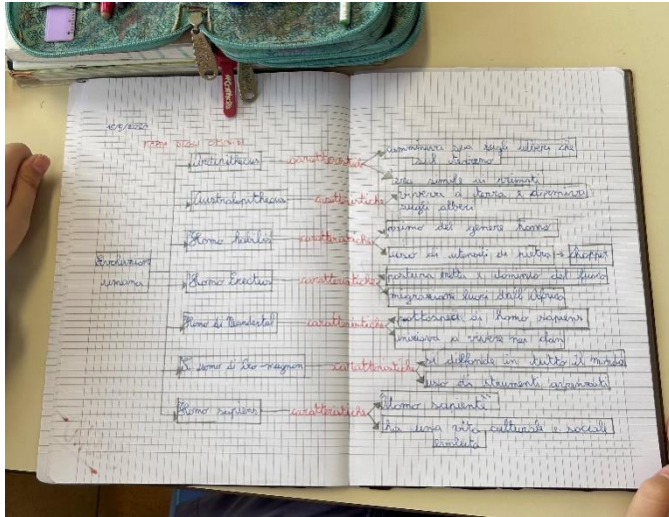 MAPPA DEGLI OMINIDI
Evoluzione
umana
Ardipithecus
caratteristiche
camminava sia sugli alberi che
sul terreno
era simile ai
Australopithecus
caratteristiche
viveva a terra e dormiva
sugli alberi
Homo habilis
caratteristiche
primo del genere homo
uso di utensili di pietra
chopper
Homo Erectus
caratteristiche
postura eretta e dominio del fuoco
migrazione fuori dall'Africa
Uomo di Neandertal
caratteristiche
sottospecie di homo sapiens
iniziava a vivere nei clan
L'uomo di Cro-magnon
caratteristiche
si diffonde in tutto il mondo
uso di strumenti avanzati
Homo sapiens
caratteristiche
"Uomo sapiente"
ha una vita culturale e sociale